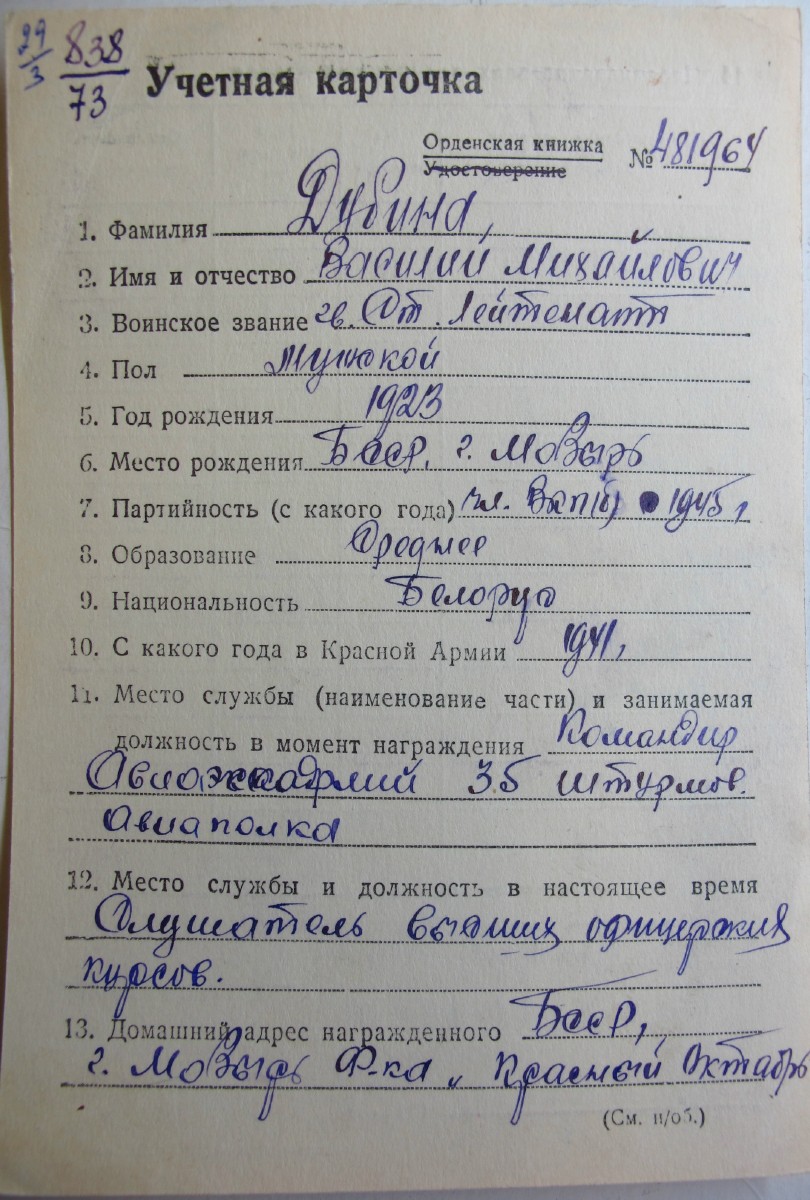 29/3 838/73 Учетная карточка
Орденская книжка
Удостоверение № 481964
1. Фамилия Дубина,
2. Имя и отчество Василий Михайлович
3. Воинское звание гв. Ст. Лейтенант
4. Пол Мужской
5. Год рождения 1923
6. Место рождения Бсср, г. Мозырь
7. Партийность (с какого года) чл. Вкп(б) 1945 г
8. Образование Среднее
9. Национальность Белорус
10. С какого года в Красной Армии 1941,
11. Место службы (наименование части) и занимаемая
должность в момент награждения Командир
Авиаэскадрилий 35 штурмов.
авиаполка
12. Место службы и должность в настоящее время
Слушатель высших офицерских
курсов.
13. Домашний адрес награжденного Бсср,
г. Мозырь Ф-ка „ Красный Октябрь
(См. н/об.)